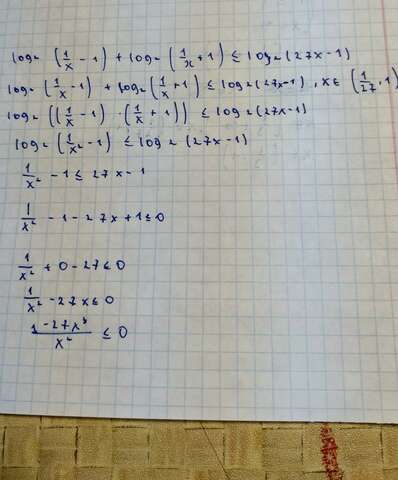 log₂ (1/x - 1) + log₂ (1/x + 1) ≤ log₂ (27x - 1)
log₂ (1/x - 1) + log₂ (1/x + 1) ≤ log₂ (27x - 1), x ∈ (1/27, 1)
log₂ ((1/x - 1) · (1/x + 1)) ≤ log₂ (27x - 1)
log₂ (1/x² - 1) ≤ log₂ (27x - 1)
1/x² - 1 ≤ 27x - 1
1/x² - 1 - 27x + 1 ≤ 0
1/x² + 0 - 27 ≤ 0
1/x² - 27x ≤ 0
(1 - 27x³)/x² ≤ 0